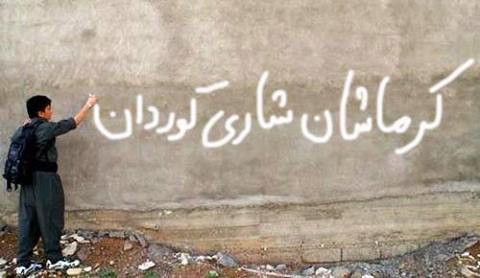 کرماشان شاری کوردان